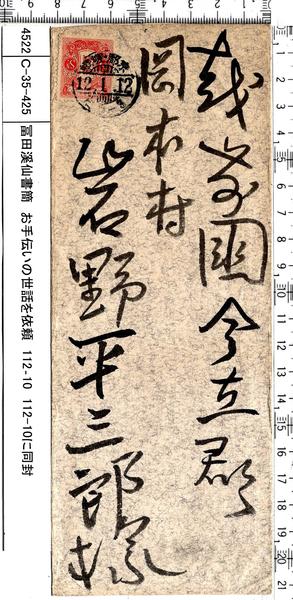 越前國今立郡
岡本村
岩野平三郎様
12.1.12
4522 C-35-425 冨田溪仙書簡 お手伝いの世話を依頼 112-10 112-10に同封